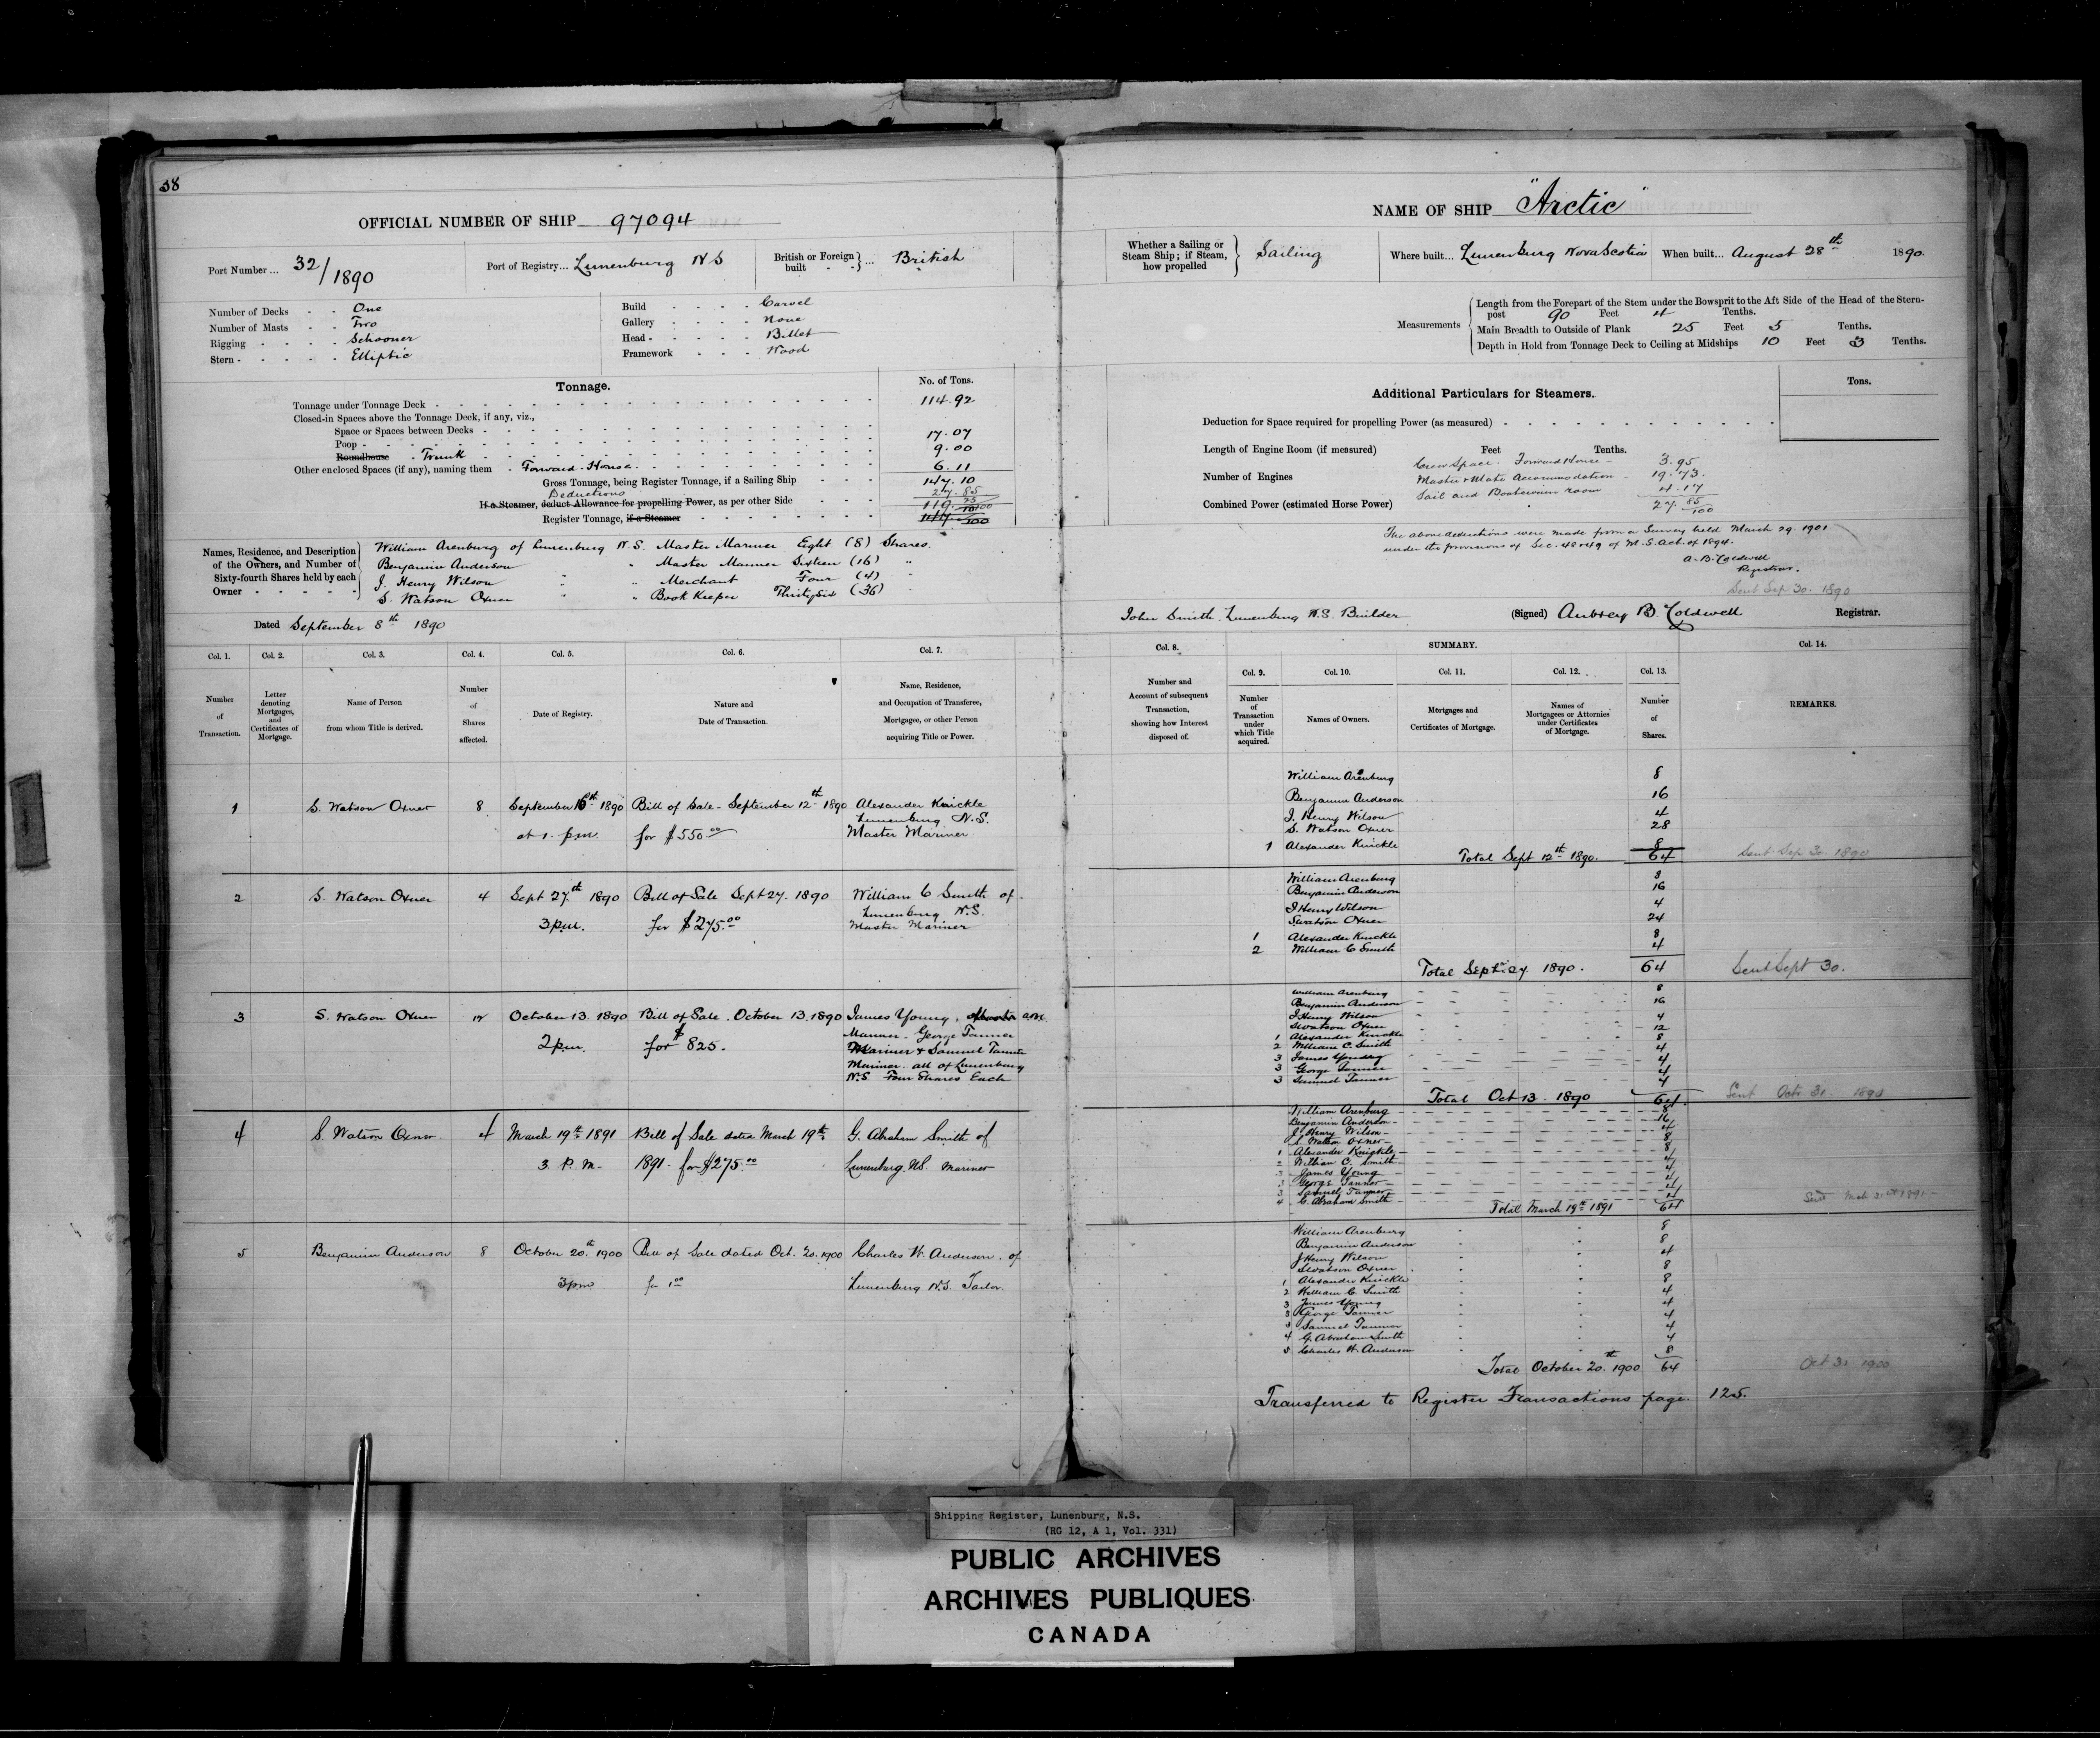 38
OFFICIAL NUMBER OF SHIP 97094
Port Number... 32/1890
Port of Registry... Lunenburg N S
British or Foreign built } ... British
Number of Decks - - One
Number of Masts - - Two
Rigging - - - - Schooner
Stern - - - - - Elliptic
Build - - - - Carvel
Gallery - - - - None
Head - - - - - Billet
Framework - - - Wood
Tonnage.
No. of Tons.
Tonnage under Tonnage Deck - 114.92
Closed-in Spaces above the Tonnage Deck, if any, viz.,
Space or Spaces between Decks - 17.07
Poop - 9.00
Roundhouse - Trunk
Other enclosed Spaces (if any), naming them - Forward House 6.11
Gross Tonnage, being Register Tonnage, if a Sailing Ship - - - 147.10
Deductions 27.85
If a Steamer, deduct Allowance for propelling Power, as per other Side - - - 119. 25/100
Register Tonnage, if a Steamer 147 10/100
Names, Residence, and Description of the Owners, and Number of Sixty-fourth Shares held by each Owner - - - - -
William Arenburg of Lunenburg N.S. Master Mariner Eight (8) Shares.
Benjamin Anderson " " Master Mariner Sixteen (16) "
J. Henry Wilson " " Merchant Four (4) "
S. Watson Oxner " " Book Keeper Thirty Six (36)
Dated September 8th 1890
NAME OF SHIP "Arctic"
Whether a Sailing or Steam Ship; if Steam, how propelled } Sailing
Where built... Lunenburg Nova Scotia
When built... August 28th 1890.
Measurements
Length from the Forepart of the Stem under the Bowsprit to the Aft Side of the Head of the Stern-
post 90 Feet 4 Tenths.
Main Breadth to Outside of Plank 25 Feet 5 Tenths.
Depth in Hold from Tonnage Deck to Ceiling at Midships 10 Feet 3 Tenths.
Additional Particulars for Steamers.
Tons.
Deduction for Space required for propelling Power (as measured)
Length of Engine Room (if measured) Feet Tenths.
Crew Space. Forward House - 3.95
Number of Engines
Master & Mate Accommodation - 19.73.
Sail and Boatswain room 4.17
Combined Power (estimated Horse Power) 27. 85/100
The above deductions were made from a Survey held March 29. 1901
under the provisions of Sec. 48 & 49 of M.S. Act. of 1894.
A. B. Coldwell
Registrar.
Sent Sep 30. 1890
John Smith, Lunenburg N.S. Builder
(Signed) Aubrey B. Coldwell Registrar.
Col. 1. Col. 2. Col. 3. Col. 4. Col. 5. Col. 6. Col. 7.
Number of Transaction.
Letter denoting Mortgages, and Certificates of Mortgage.
Name of Person from whom Title is derived.
Number of Shares affected.
Date of Registry.
Nature and Date of Transaction.
Name, Residence, and Occupation of Transferee, Mortgagee, or other Person acquiring Title or Power.
1 S. Watson Oxner 8 September 16th 1890 Bill of Sale - September 12th 1890 Alexander Knickle
Lunenburg N.S.
at 1. p.m. for $550.00 Master Mariner
2 S. Watson Oxner 4 Sept 27th 1890 Bill of Sale Sept 27. 1890 William C Smith of
Lunenburg N.S.
3 p.m. for $275.00 Master Mariner
3 S. Watson Oxner 12 October 13. 1890 Bill of Sale. October 13. 1890 James Young,
Mariner - George Tanner
2 p.m. for $825.
Mariner & Samuel Tanner
Mariner. all of Lunenburg
N.S. Four Shares Each
4 S. Watson Oxner. 4 March 19th 1891 Bill of Sale dated March 19th G. Abraham Smith of
3. P. M. 1891 - for $275.00 Lunenburg N.S. Mariner
5 Benjamin Anderson 8 October 20th 1900 Bill of Sale dated Oct. 20. 1900 Charles W. Anderson. of
3 pm for 1.00 Lunenburg N.S. Tailor.
Col. 8. SUMMARY. Col. 14.
Col. 9. Col. 10. Col. 11. Col. 12. Col. 13.
Number and Account of subsequent Transaction, showing how Interest disposed of.
Number of Transaction under which Title acquired.
Names of Owners.
Mortgages and Certificates of Mortgage.
Names of Mortgagees or Attornies under Certificates of Mortgage.
Number of Shares.
REMARKS.
William Arenburg 8
Benjamin Anderson 16
J. Henry Wilson 4
S. Watson Oxner 28
1 Alexander Knickle 8
Total Sept 12th 1890. 64 Sent Sep 30. 1890
William Arenburg 8
Benjamin Anderson 16
J Henry Wilson 4
S Watson Oxner 24
1 Alexander Knickle 8
2 William C Smith 4
Total Sept 27 1890. 64 Sent Sept 30.
William Arenburg 8
Benjamin Anderson 16
J Henry Wilson 4
S Watson Oxner 12
1 Alexander Knickle 8
2 William C. Smith 4
3 James Young 4
3 George Tanner 4
3 Samuel Tanner 4
Total Oct 13. 1890 64. Sent Octr 31. 1890
William Arenburg 8
Benjamin Anderson 16
J. Henry Wilson 4
S. Watson Oxner 8
1 Alexander Knickle 8
2 William C. Smith 4
3 James Young 4
3 George Tanner 4
3 Samuel Tanner 4
4 G. Abraham Smith 4
Total March 19th 1891 64 Sent Mch 31st 1891
William Arenburg 8
Benjamin Anderson 8
J Henry Wilson 4
S Watson Oxner 8
1 Alexander Knickle 8
2 William C. Smith 4
3 James Young 4
3 George Tanner 4
3 Samuel Tanner 4
4 G. Abraham Smith 4
5 Charles W. Anderson 8
Total October 20th 1900 64 Oct 31 1900
Transferred to Register Transactions page. 125.
Shipping Register, Lunenburg, N.S.
(RG 12, A 1, Vol. 331)
PUBLIC ARCHIVES
ARCHIVES PUBLIQUES
CANADA